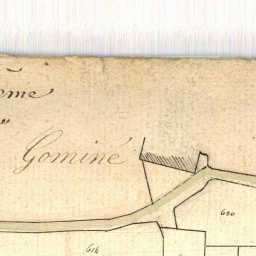 eme
Gominé
680
616